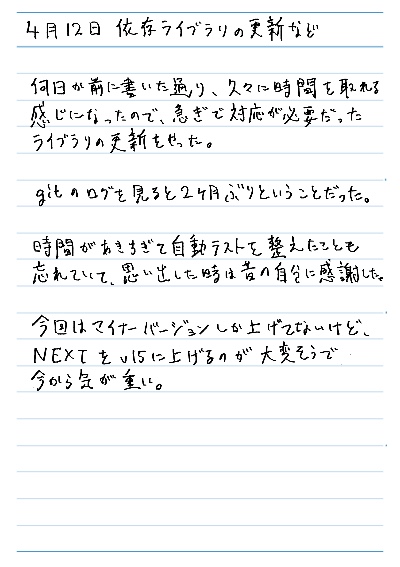 4月12日 依存ライブラリの更新など
何日か前に書いた通り、久々に時間を取れる
感じになったので、急ぎで対応が必要だった
ライブラリの更新をやった。
gitのログを見ると2ヶ月ぶりということだった。
時間があきすぎて自動テストを整えたことも
忘れていて、思い出した時は昔の自分に感謝した。
今回はマイナーバージョンしか上げてないけど、
NEXTをv15に上げるのが大変そうで
今から気が重い。